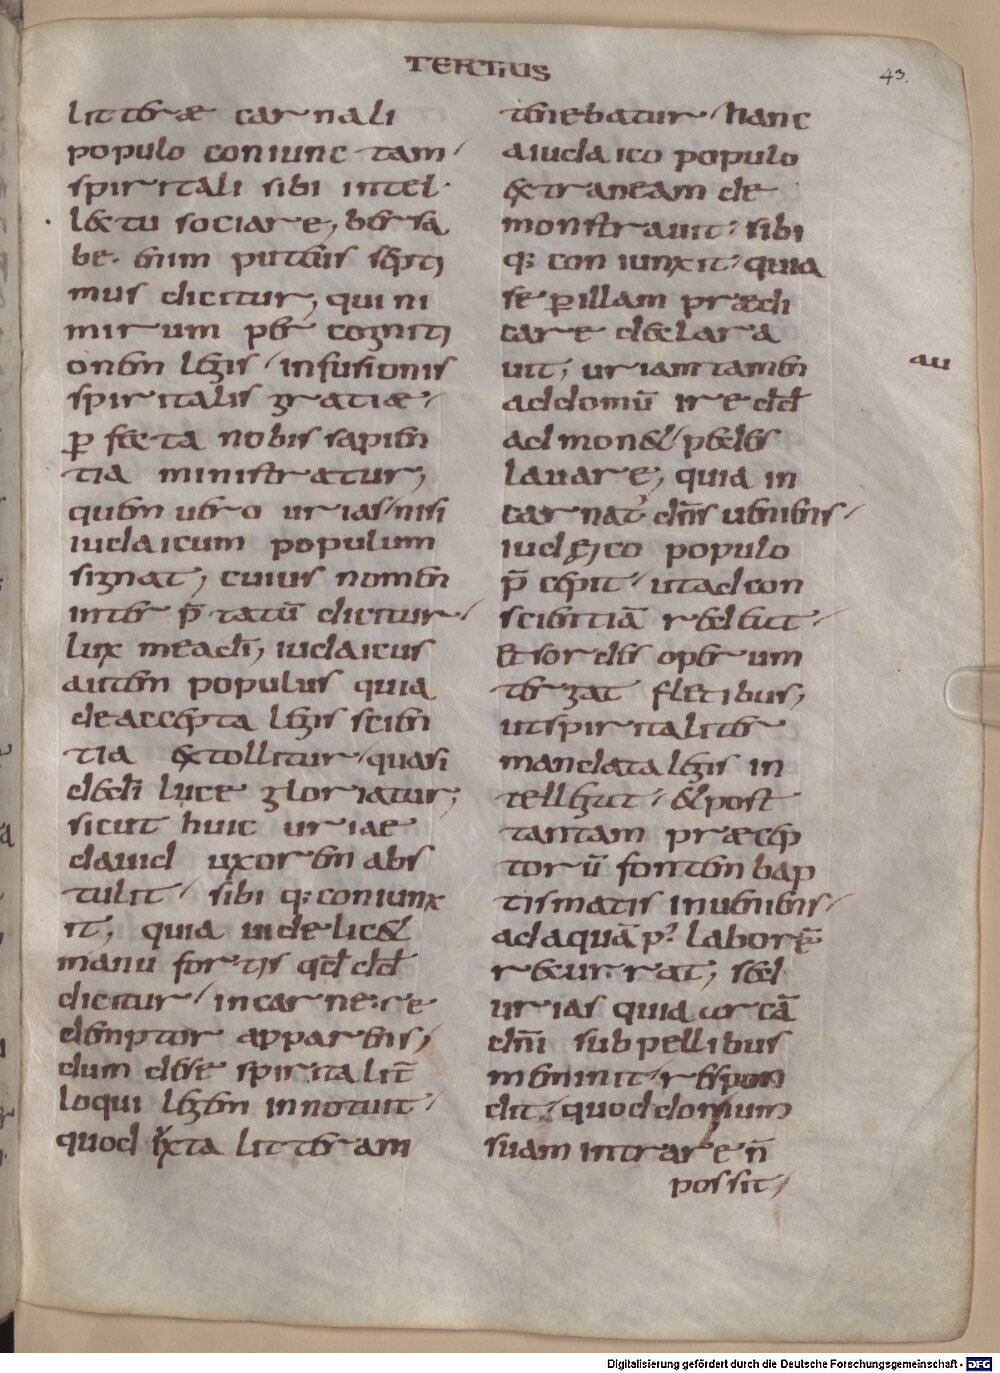 TERTIUS
43.
litterae carnali
populo coniunctam
spiritali sibi intel
lectu sociare, bersa
bee enim puteus septi
mus dicitur, qui ni
mirum per cogniti
onem legis infusionis
spiritalis gratiae
p̲fecta nobis sapien
tia ministratur,
quem uero urias nisi
iudaicum populum
signat, cuius nomen
interp̄tatū dicitur
lux mea di̅, iudaicus
autem populus quia
de accepta legis scien
tia extollitur quasi
de di̅ luce gloriatur,
sicut huic uriae
dauid uxorem abs
tulit sibi q; coniunx
it, quia uidelic&
manu fortis qd̅ dd̅
dicitur in carne re
demptor apparens,
dum de se spiritalit̅
loqui legem innotuit
quod iuxta litteram
tenebatur Hanc
a iudaico populo
extraneam de
monstrauit sibi
q; coniunxit quia
se p̲ illam praedi
care declara
uit, uriam tamen
au
ad domū ire dd̅
admon& pedes
lauare, quia in
carnat' dn̅s ueniens
iudęico populo
p̄cepit ut ad con
scientiā redeat
et sordes operum
tergat fletibus,
ut spiritaliter
mandata legis in
tellegat & post
tantam praecep
torū fontem bap
tismatis inueniens
ad aquā p' laborē
recurrat, sed
urias quia arcā
dn̅i sub pellibus
meminit respon
dit quod domum
suam intrare n̅
possit,
Digitalisierung gefördert durch die Deutsche Forschungsgemeinschaft - DFG